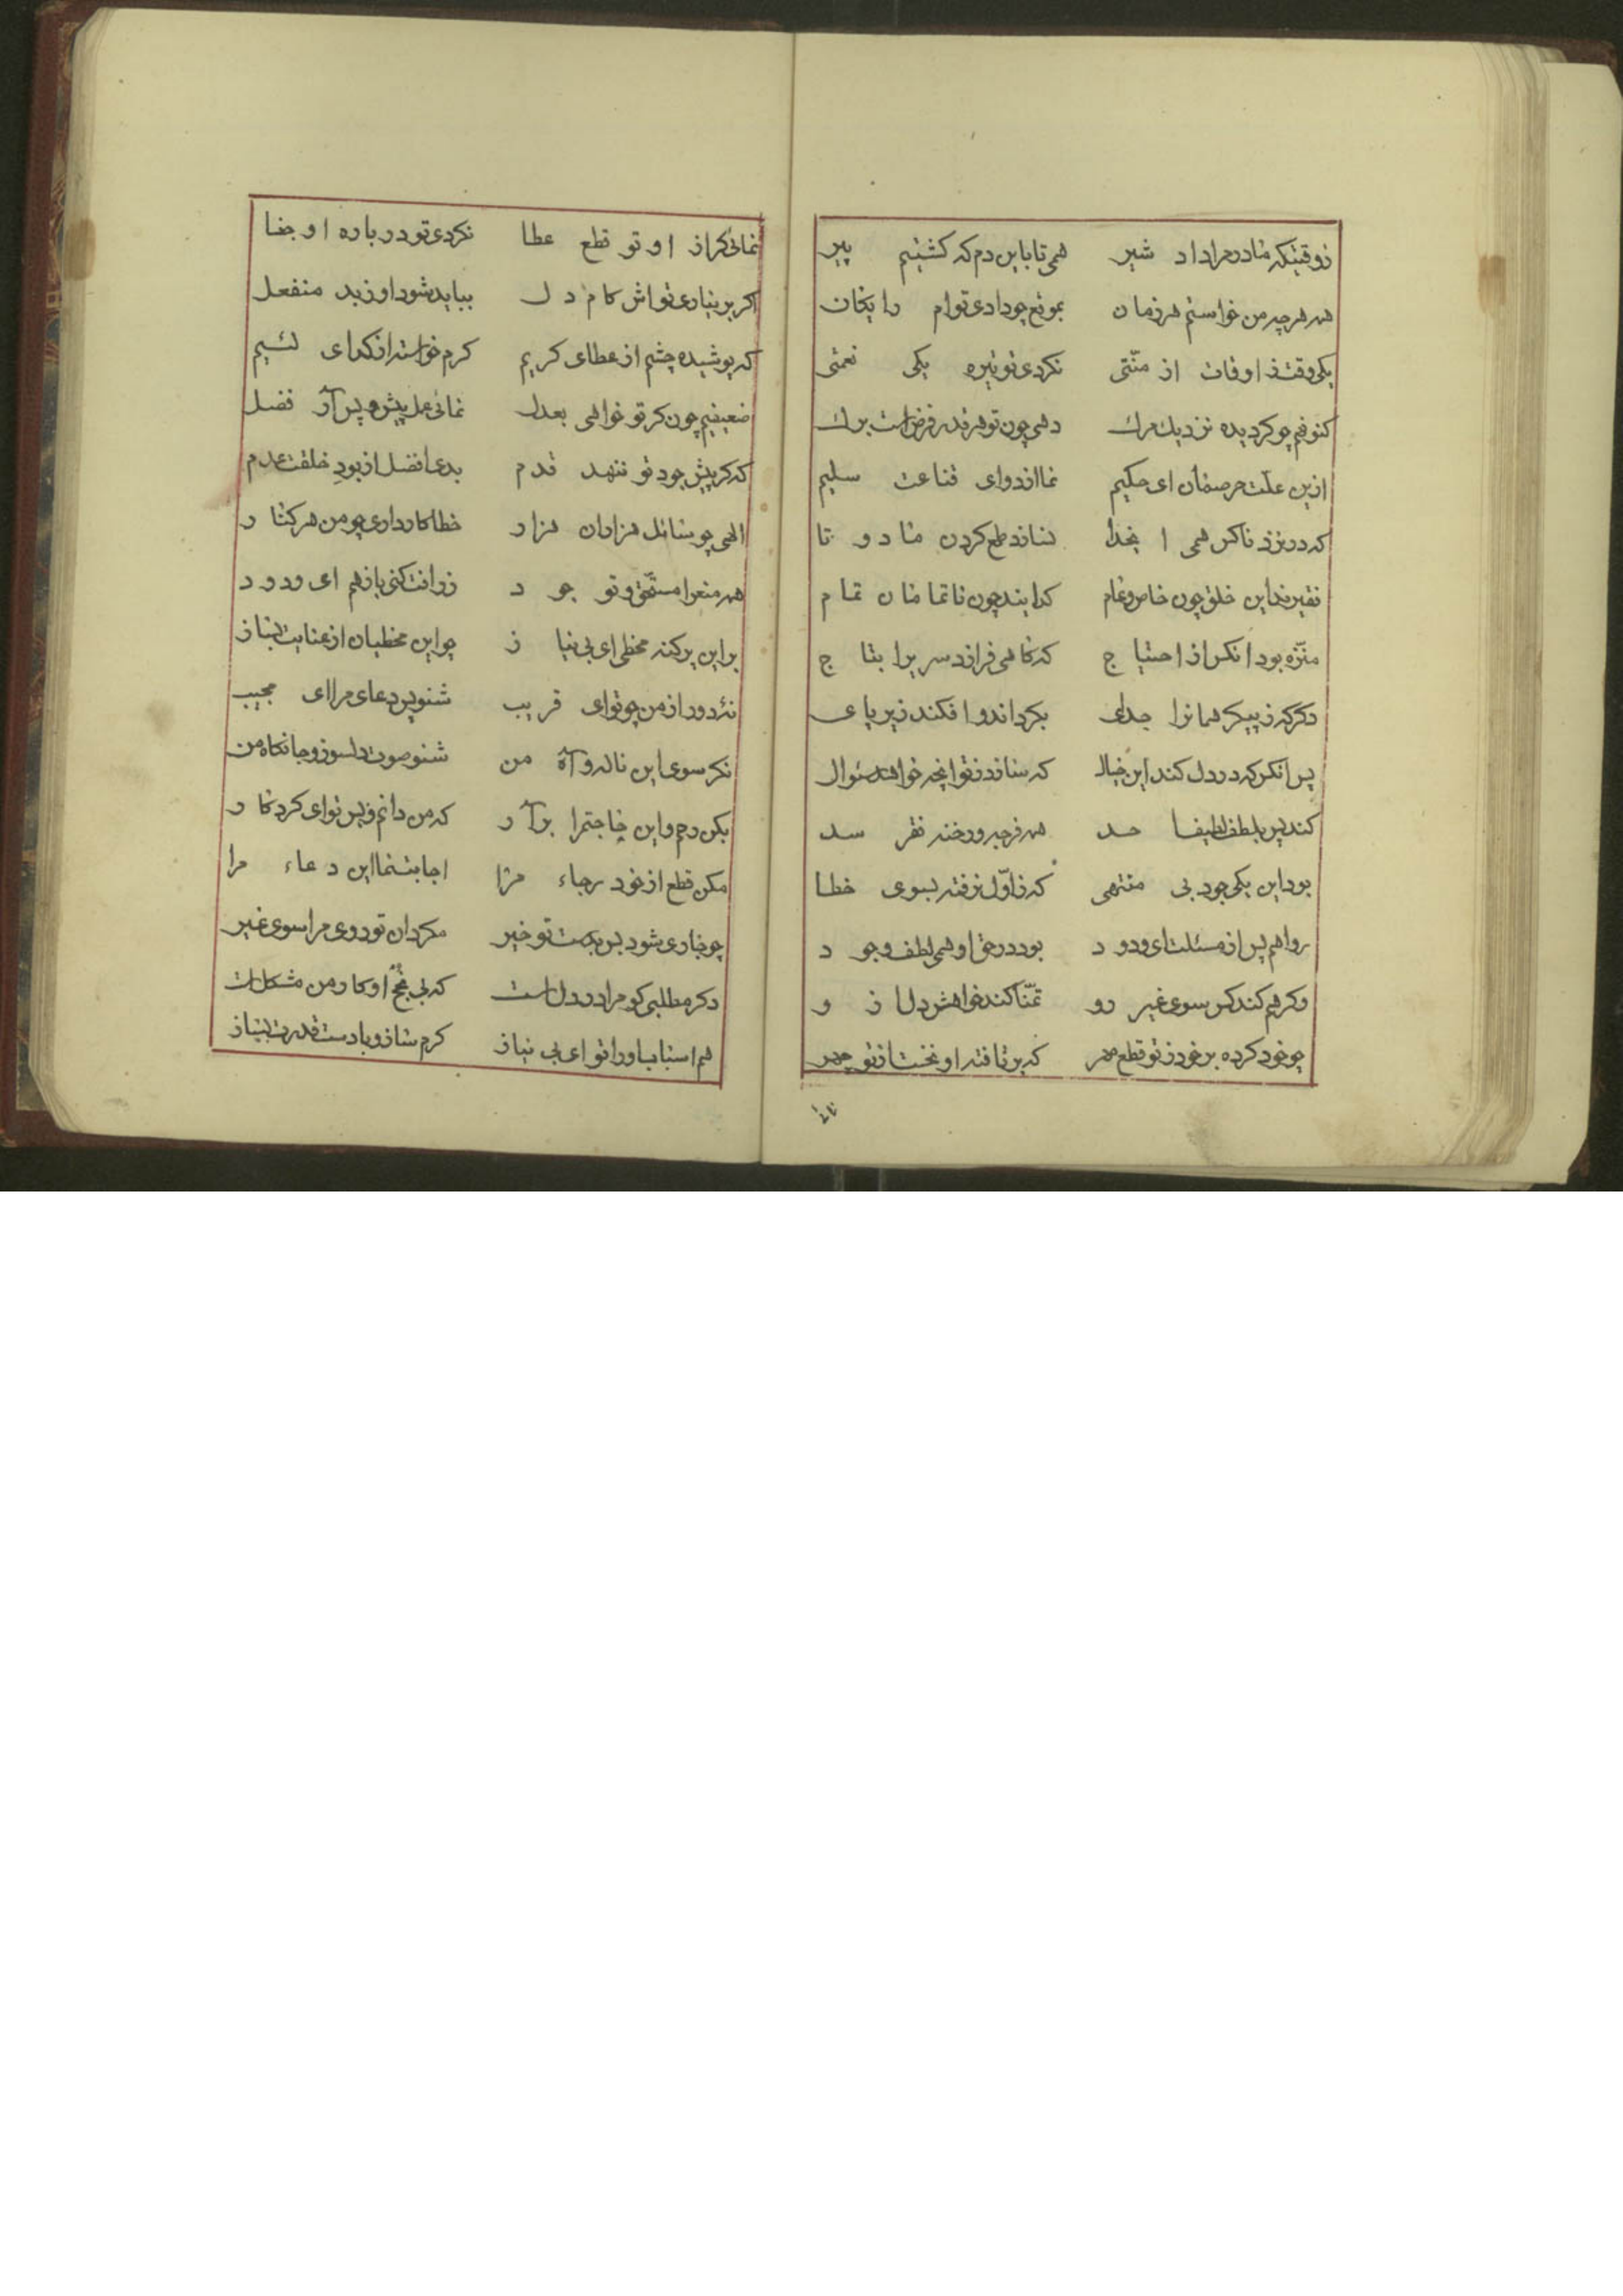 زوقتیکه مادر مرا داد شیر همی تا باین دم که کشتیم پیر
همه هرچه من خواستم هر زمان بموقع چو دادی توام رایکان
یکی وقت ز اوقات از منّتی نکردی تو تیره یکی نعمتی
کنوفم چو کردیده نزدیک مرک دهی چون تو هر قدر فرض است برک
ازین علّت حرصمان ای حکیم نما از دوای قناعت سلیم
که در نزد ناکس همی ا بخدا نسازد طمع کردن ما دو تا
فقیرند این خلق چون خاص و عام کدایند چون ناتمامان تمام
منزّه بود انکس از احتیاج که کاهی فرازد سر برا بتاج
دکر که ز پیکر همانرا جدای بکرداند و افکند زیر پای
پس انکس که در دل کند این خیال که سازد ز تو انچه خواهد سئوال
کند پس بلطف لطیفا حد همه فرجه و رخنه فقر سد
بود این یکی جود بی منتهی که ز اوّل نرفته بسوی خطا
روا هم پس از مسئلت ای ودود بود در حق او همی لطف و جود
وکر هم کند کس سوی غیر رو تمنّا کند خواهش دل ز و
چو خود کرده بر خود ز تو قطع مهر که برتافته او نخست از تو چهر
نمائی کر از او تو قطع عطا نکردی تو درباره او جفا
اکر بر نیاری تو اش کام دل بباید شود او ز ید منفعل
که پوشیده چشم از عطای کریم کرم خواسته از کدای لئیم
ضعیفیم چون کر تو خواهی بعدل نمائی عمل پیش و پس آر فضل
که کر پیش جود تو ننهد قدم بدعا فضل از بود خلقت عدم
الهی چو سائل هزاران هزار خطا کار داری چو من هر کنار
همه منعرا مستحق و تو جود ز رافت کنی باز هم ای ودود
بر این پر کنه مخطی ای بی نیاز چو این مخطیان از عنایت بساز
نئه دور از من چو تو ای قریب شنو پس دعای مرا ای مجیب
نکر سوی این ناله و آه من شنو صوت دلسوز و جانکاه من
بکن رحم و این حاجتم را برآر که من دانم و پس تو ای کردکار
مکن قطع از خود رجاء مرا اجابت نما این دعاء مرا
چو جاری شود بس بدست تو خیر مکردان تو روی مرا سوی غیر
دکر مطلبی کو مرا در دل است که بی نجح او کار من مشکل است
هم اسباب او را تو ای بی نیاز کرم ساز و با دست قدرت بساز